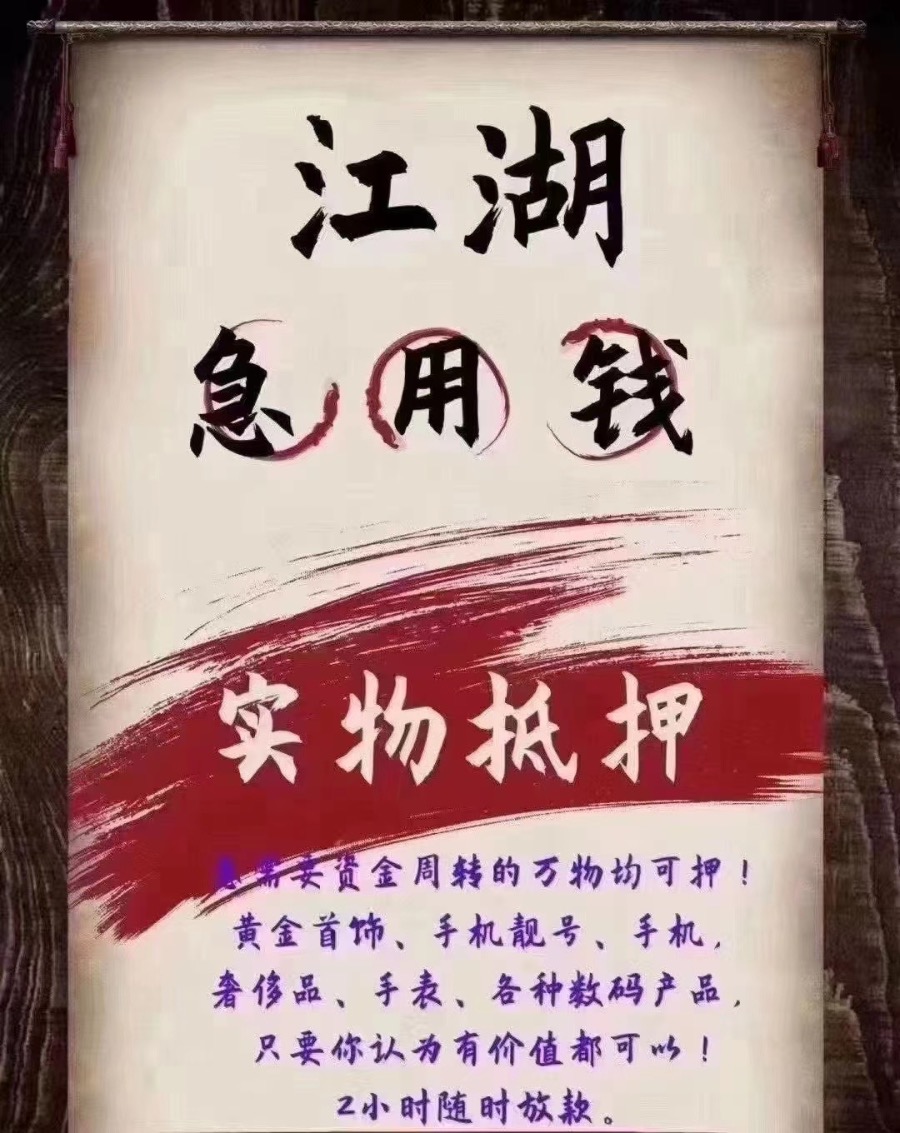 江湖
急用钱
实物抵押
急需要资金周转的万物均可押！
黄金首饰、手机靓号、手机，
奢侈品、手表、各种数码产品，
只要你认为有价值都可以！
2小时随时放款。